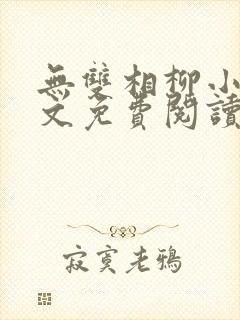 無雙相柳小
文免費閱讀
寂寞老鴉